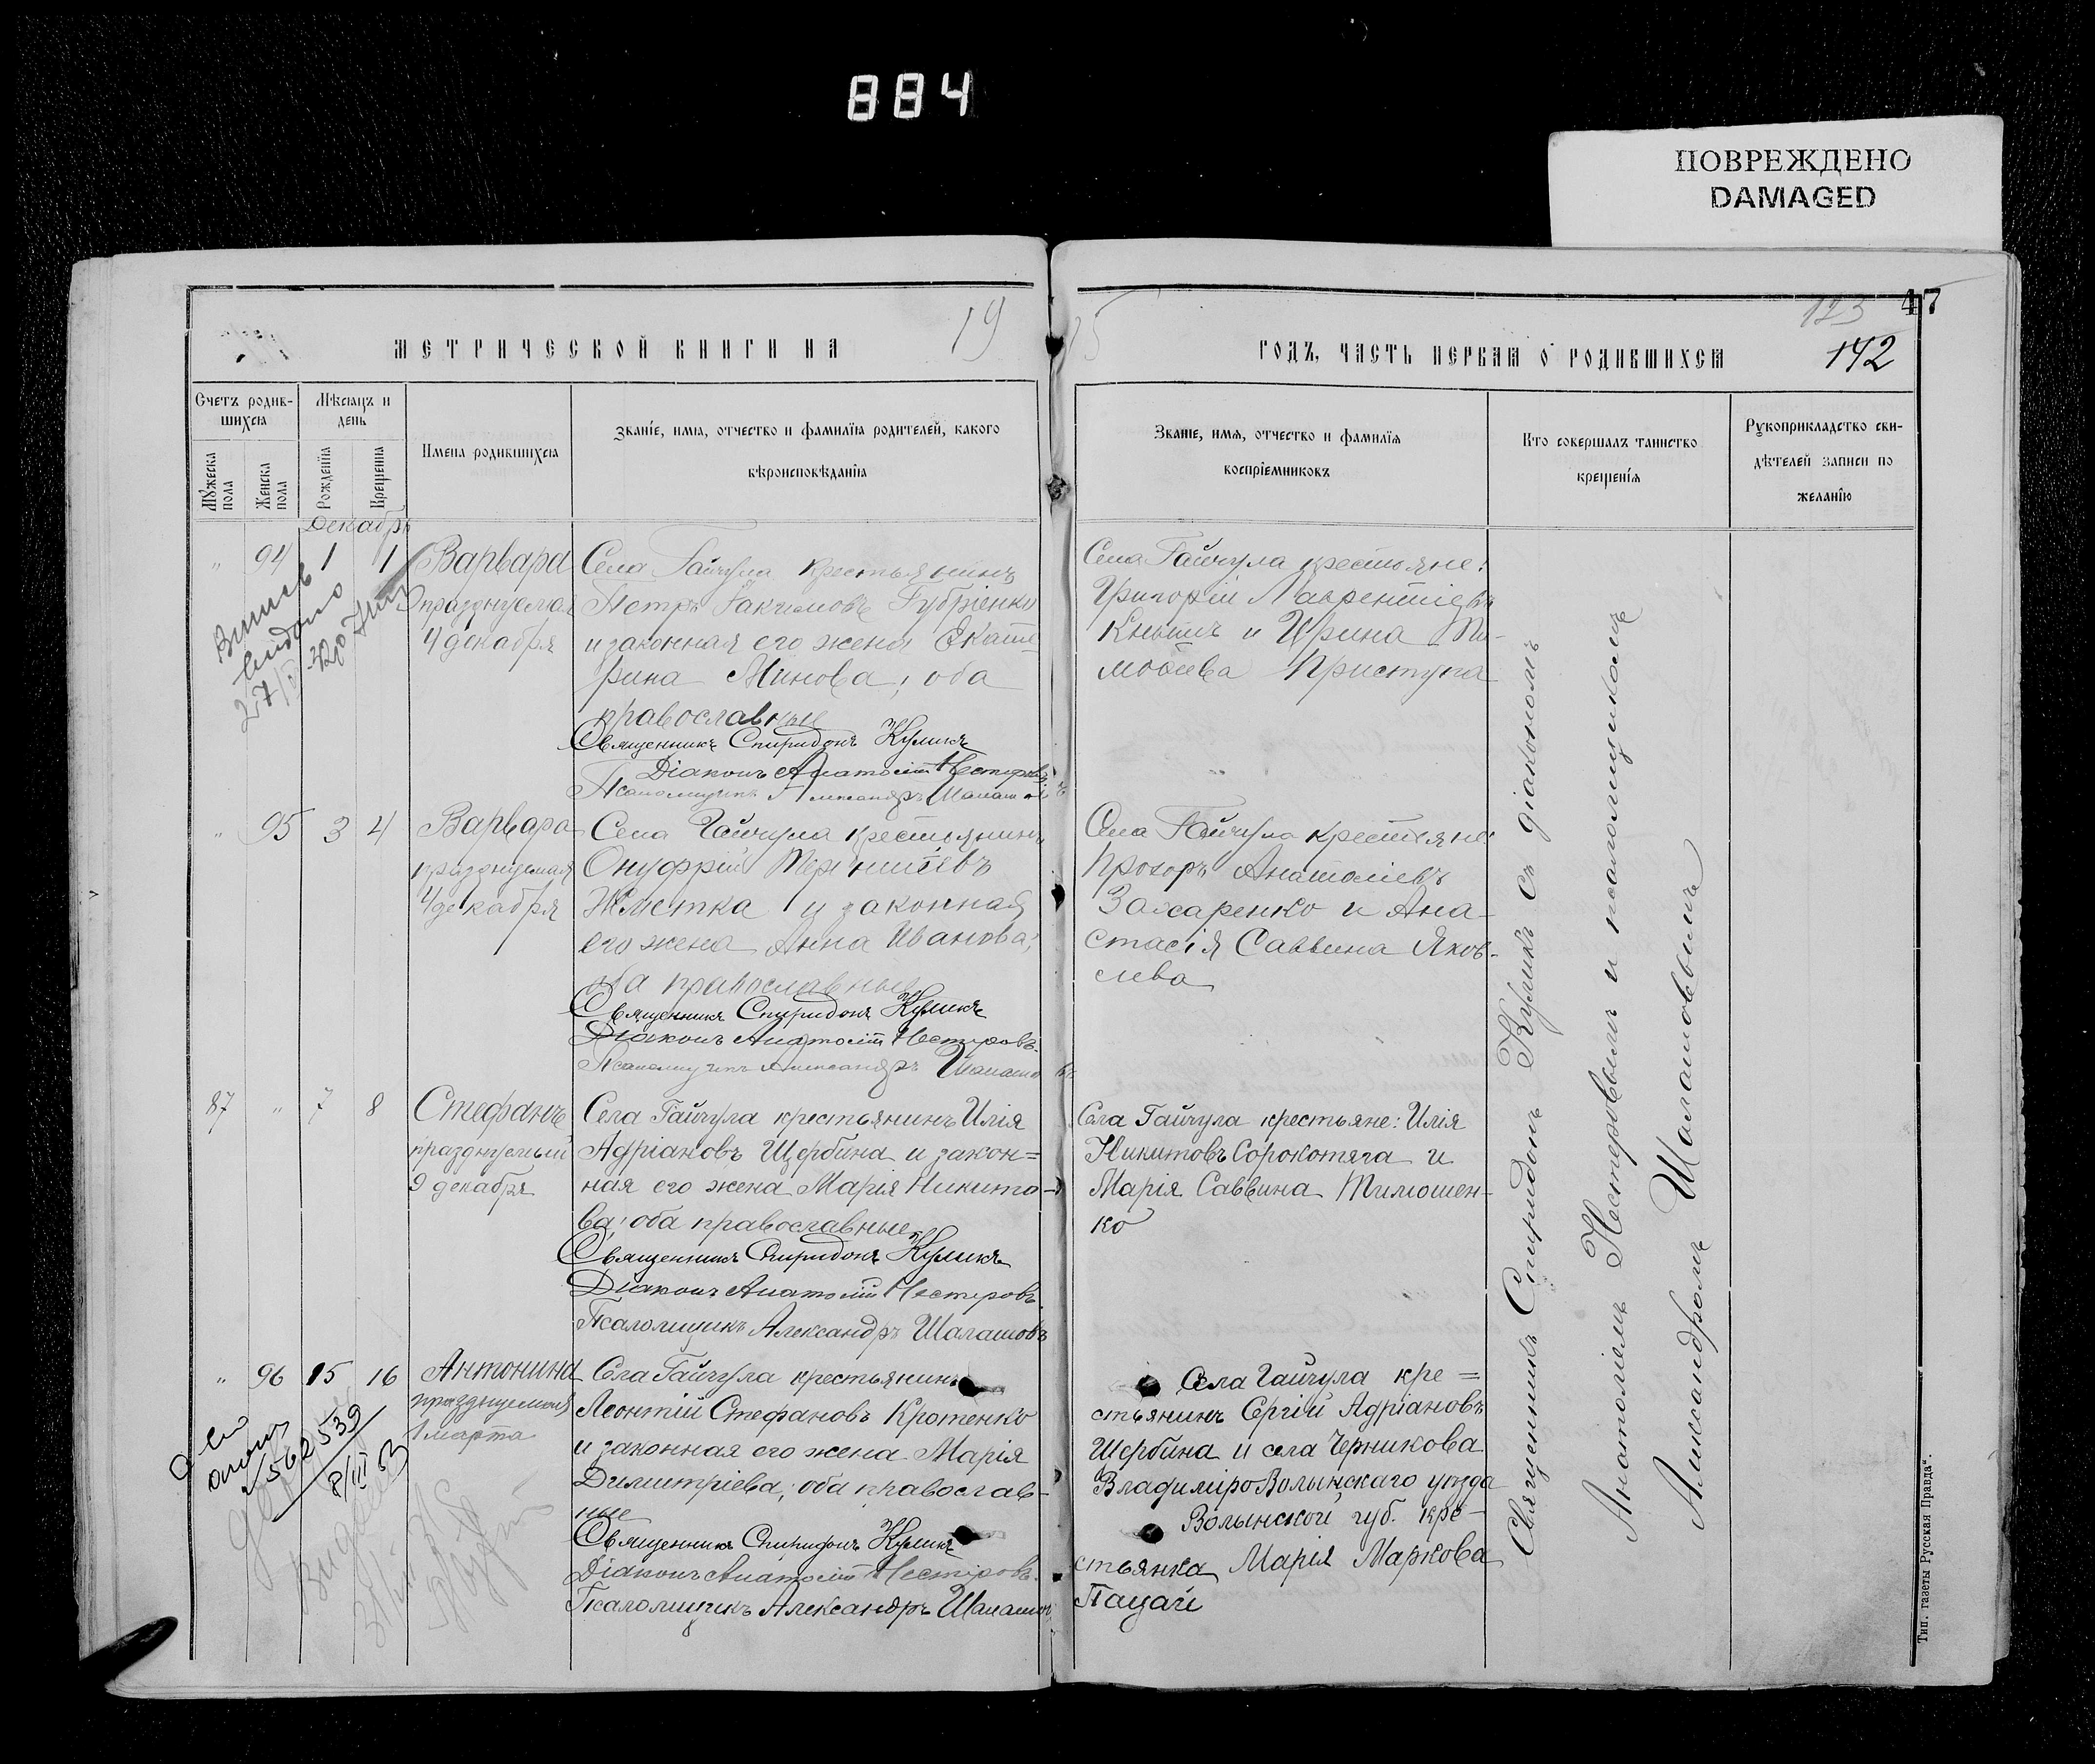 884
ПОВРЕЖДЕНО
DAMAGED
47
123
142
МЕТРИЧЕСКОЙ КНИГИ НА 19
15 ГОДЪ, ЧАСТЬ ПЕРВАЯ О РОДИВШИХСЯ
Счетъ родив-
шихся
Мѣсяцъ и
день
Мужеска пола
Женска пола
Рожденія
Крещенія
Имена родившихся
Званіе, имя, отчество и фамилія родителей, какого
вѣроисповѣданія
Званіе, имя, отчество и фамилія
воспріемниковъ
Кто совершалъ таинство
крещенія
Рукоприкладство сви-
дѣтелей записи по
желанію
Декабрь
" 94 1 1
Варвара
празднуемая
4 декабря
Села Гайчула крестьянинъ
Петръ Іакимовъ Губріенко
и законная его жена Екате-
рина Минова; оба
православные
Священникъ Спиридонъ Куликъ
Діаконъ Анатолій Нестеровъ
Псаломщикъ Александръ Шалашовъ
Села Гайчула крестьяне:
Григорій Лаврентіевъ
Кнышъ и Ирина Ти-
моѳеева Приступа
" 95 3 4
Варвара
празднуемая
4 декабря
Села Гайчула крестьянинъ
Онуфрій Терентіевъ
Жметка и законная
его жена Анна Иванова;
оба православные
Священникъ Спиридонъ Куликъ
Діаконъ Анатолій Нестеровъ
Псаломщикъ Александръ Шалашовъ
Села Гайчула крестьяне:
Прохоръ Анатоліевъ
Захаренко и Ана-
стасія Саввина Яков-
лева
87 " 7 8
Стефанъ
празднуемый
9 декабря
Села Гайчула крестьянинъ Илія
Адріановъ Щербина и закон=
ная его жена Марія Никито-
ва; оба православные
Священникъ Спиридонъ Куликъ
Діаконъ Анатолій Нестеровъ
Псаломщикъ Александръ Шалашовъ
Села Гайчула крестьяне: Илія
Никитовъ Сорокотяга и
Марія Саввина Тимошен-
ко
" 96 15 16
Антонина
празднуемая
1 марта
Села Гайчула крестьянинъ
Леонтій Стефановъ Кротенко
и законная его жена Марія
Димитріева; оба православ-
ные
Священникъ Спиридонъ Куликъ
Діаконъ Анатолій Нестеровъ
Псаломщикъ Александръ Шалашовъ
Села Гайчула кре=
стьянинъ Сергій Адріановъ
Щербина и села Черникова
Владиміро Волынскаго уѣзда
Волынской губ. кре-
стьянка Марія Маркова
Пацай
562539
8/III 53
Священникъ Спиридонъ Куликъ съ діакономъ
Анатоліемъ Нестеровымъ и псаломщикомъ
Александромъ Шалашовымъ
Тип. газеты Русская Правда".